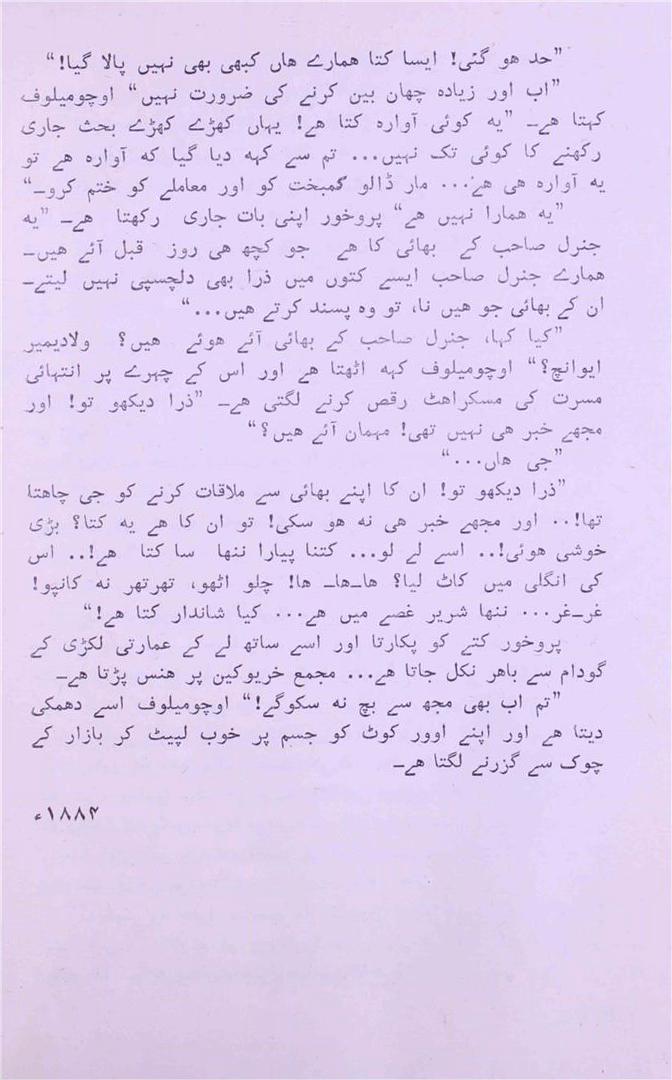 ”حد هو گئی! ایسا کتا همارے هاں کبھی بھی نہیں پالا گیا!“
”اب اور زیادہ چھان بین کرنے کی ضرورت نہیں“ اوچومیلوف
کہتا هے۔ ”یه کوئی آوارہ کتا هے! یہاں کھڑے کھڑے بحث جاری
رکھنے کا کوئی تک نہیں... تم سے کہه دیا گیا که آوارہ هے تو
یه آوارہ هی هے... مار ڈالو کمبخت کو اور معاملے کو ختم کرو۔“
”یه همارا نہیں هے“ پروخور اپنی بات جاری رکھتا هے۔ ”یه
جنرل صاحب کے بھائی کا هے جو کچھ هی روز قبل آئے هیں۔
همارے جنرل صاحب ایسے کتوں میں ذرا بھی دلچسپی نہیں لیتے۔
ان کے بھائی جو هیں نا، تو وہ پسند کرتے هیں...“
”کیا کہا، جنرل صاحب کے بھائی آئے هوئے هیں؟ ولادیمیر
ایوانچ؟“ اوچومیلوف کہه اٹھتا هے اور اس کے چہرے پر انتہائی
مسرت کی مسکراهٹ رقص کرنے لگتی هے۔ ”ذرا دیکھو تو! اور
مجھے خبر هی نہیں تھی! مہمان آئے هیں؟“
”جی هاں...“
”ذرا دیکھو تو! ان کا اپنے بھائی سے ملاقات کرنے کو جی چاهتا
تھا!.. اور مجھے خبر هی نه هو سکی! تو ان کا هے یه کتا؟ بڑی
خوشی هوئی!.. اسے لے لو... کتنا پیارا ننھا سا کتا هے!.. اس
کی انگلی میں کاٹ لیا؟ ها۔ها۔ ها! چلو اٹھو، تھرتھر نه کانپو!
غر۔غر... ننھا شریر غصے میں هے... کیا شاندار کتا هے!“
پروخور کتے کو پکارتا اور اسے ساتھ لے کے عمارتی لکڑی کے
گودام سے باهر نکل جاتا هے... مجمع خریوکین پر هنس پڑتا هے۔
”تم اب بھی مجھ سے بچ نه سکوگے!“ اوچومیلوف اسے دھمکی
دیتا هے اور اپنے اوور کوٹ کو جسم پر خوب لپیٹ کر بازار کے
چوک سے گزرنے لگتا هے۔
۱۸۸۴ء